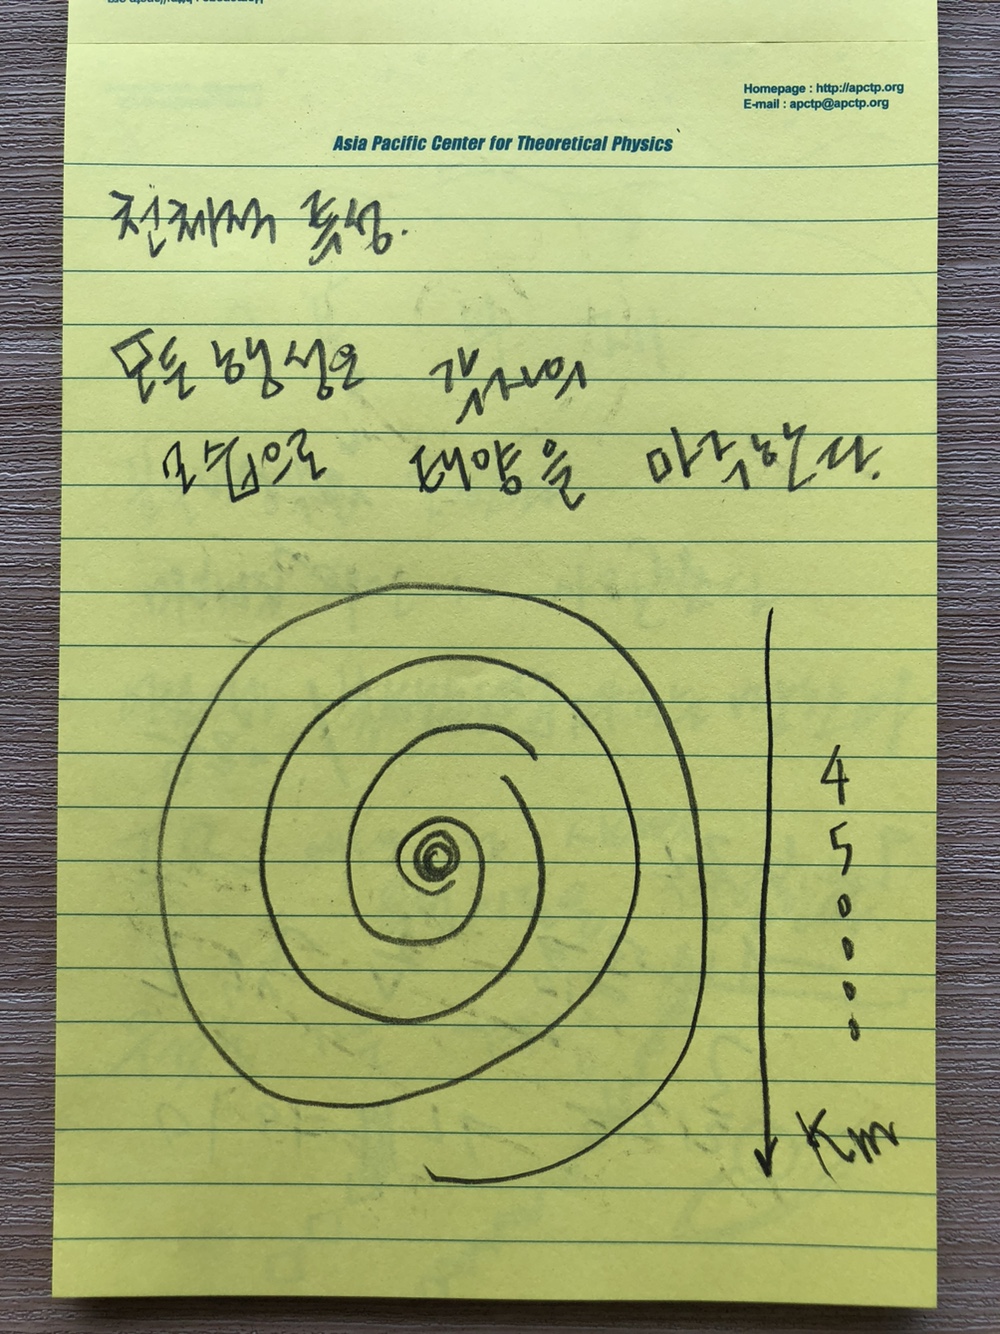 Homepage : http://apctp.org
E-mail : apctp@apctp.org
Asia Pacific Center for Theoretical Physics
천체적 특성.
모든 행성은 각자의
모습으로 태양을 마주한다.
4
5
0
0
0
0
Km